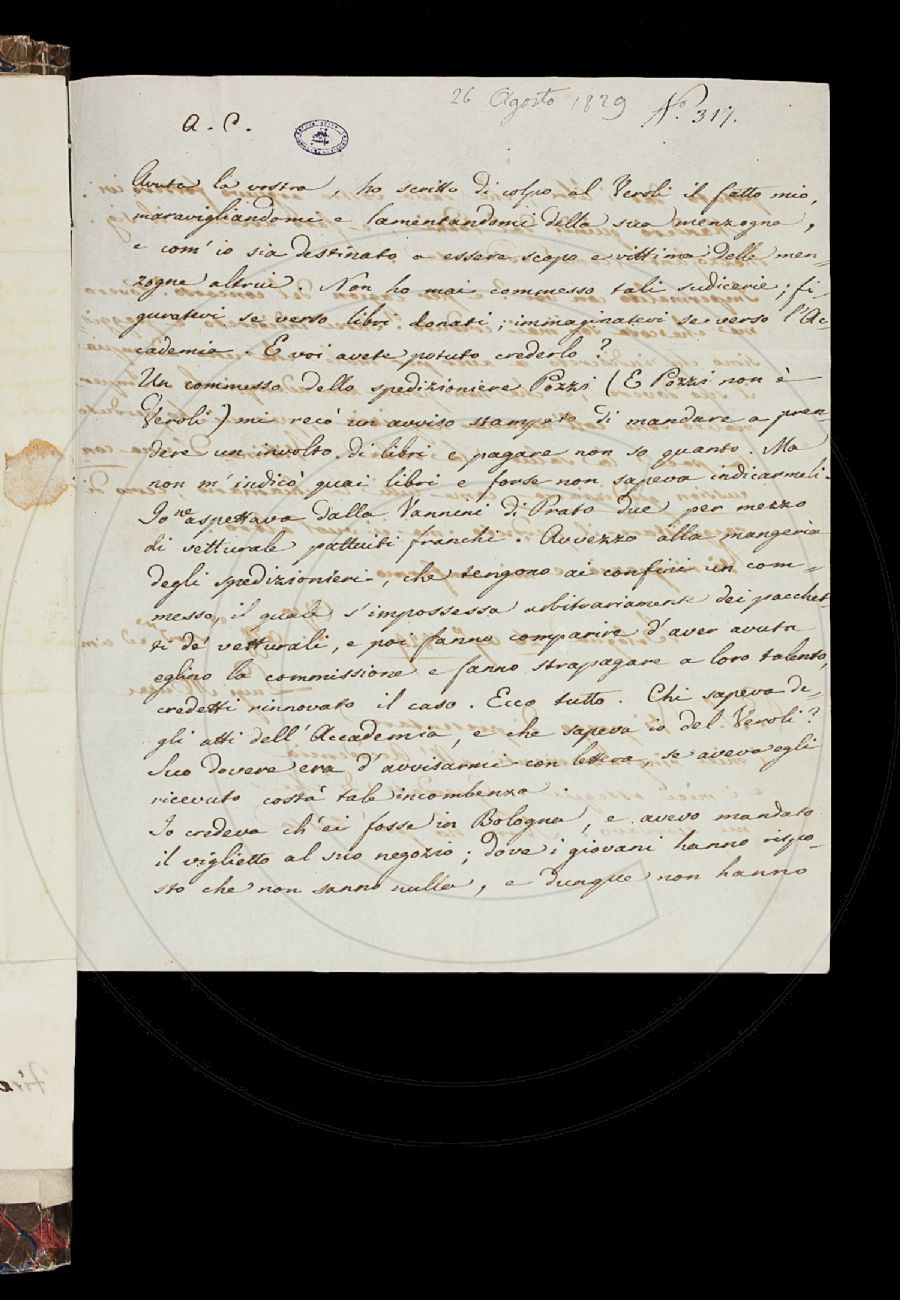 26 Agosto 1829 N.o 317.
A. C.
Avuta la vostra, ho scritto di colpo al Veroli il fatto mio,
maravigliandomi e lamentandomi della sua menzogna,
e com' io sia destinato a essere scopo e vittima delle men-
zogne altrui. Non ho mai commesso tali sudicerie; fi-
guratevi se verso libri donati; immaginatevi se verso l'Ac-
cademia. E voi avete potuto crederlo?
Un commesso dello spedizioniere Pozzi (E Pozzi non è
Veroli) mi recò un avviso stampato di mandare a pren-
dere un involto di libri e pagare non so quanto. Ma
non m'indicò quai libri e forse non sapeva indicarmeli.
Io ne aspettava dalla Vannini di Prato due per mezzo
di vetturale pattuiti franchi. Avvezzo alla mangeria
degli spedizionieri, che tengono ai confini un com-
messo, il quale s'impossessa arbitrariamente dei pacchet-
ti de' vetturali, e poi fanno comparire d'aver avuta
eglino la commissione e fanno strapagare a loro talento,
credetti rinnovato il caso. Ecco tutto. Chi sapeva de-
gli atti dell'Accademia, e che sapeva io del Veroli?
Suo dovere era d'avvisarmi con lettera, se aveva egli
ricevuto costà tale incombenza.
Io credeva ch'ei fosse in Bologna, e avevo mandato
il viglietto al suo negozio; dove i giovani hanno rispo-
sto che non sanno nulla, e dunque non hanno